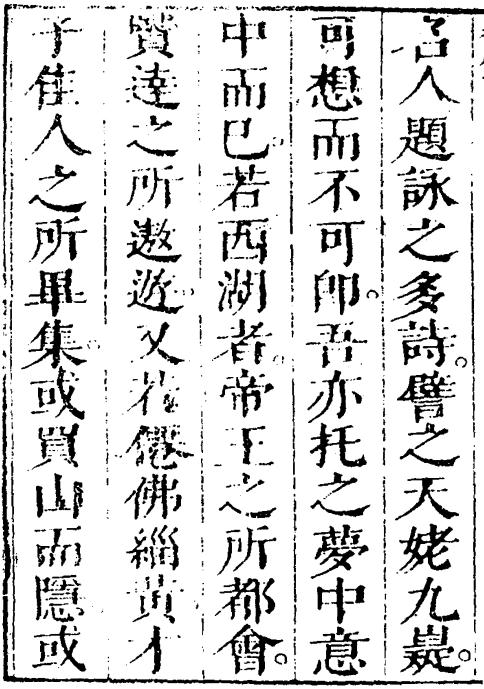 名人題詠之多詩。譬之天姥九嶷。
可想而不可卽。吾亦托之夢中意
中而已。若西湖者。帝王之所都會。
賢達之所遨遊。又若僊佛緇黃才
子佳人之所畢集。或買山而隱或